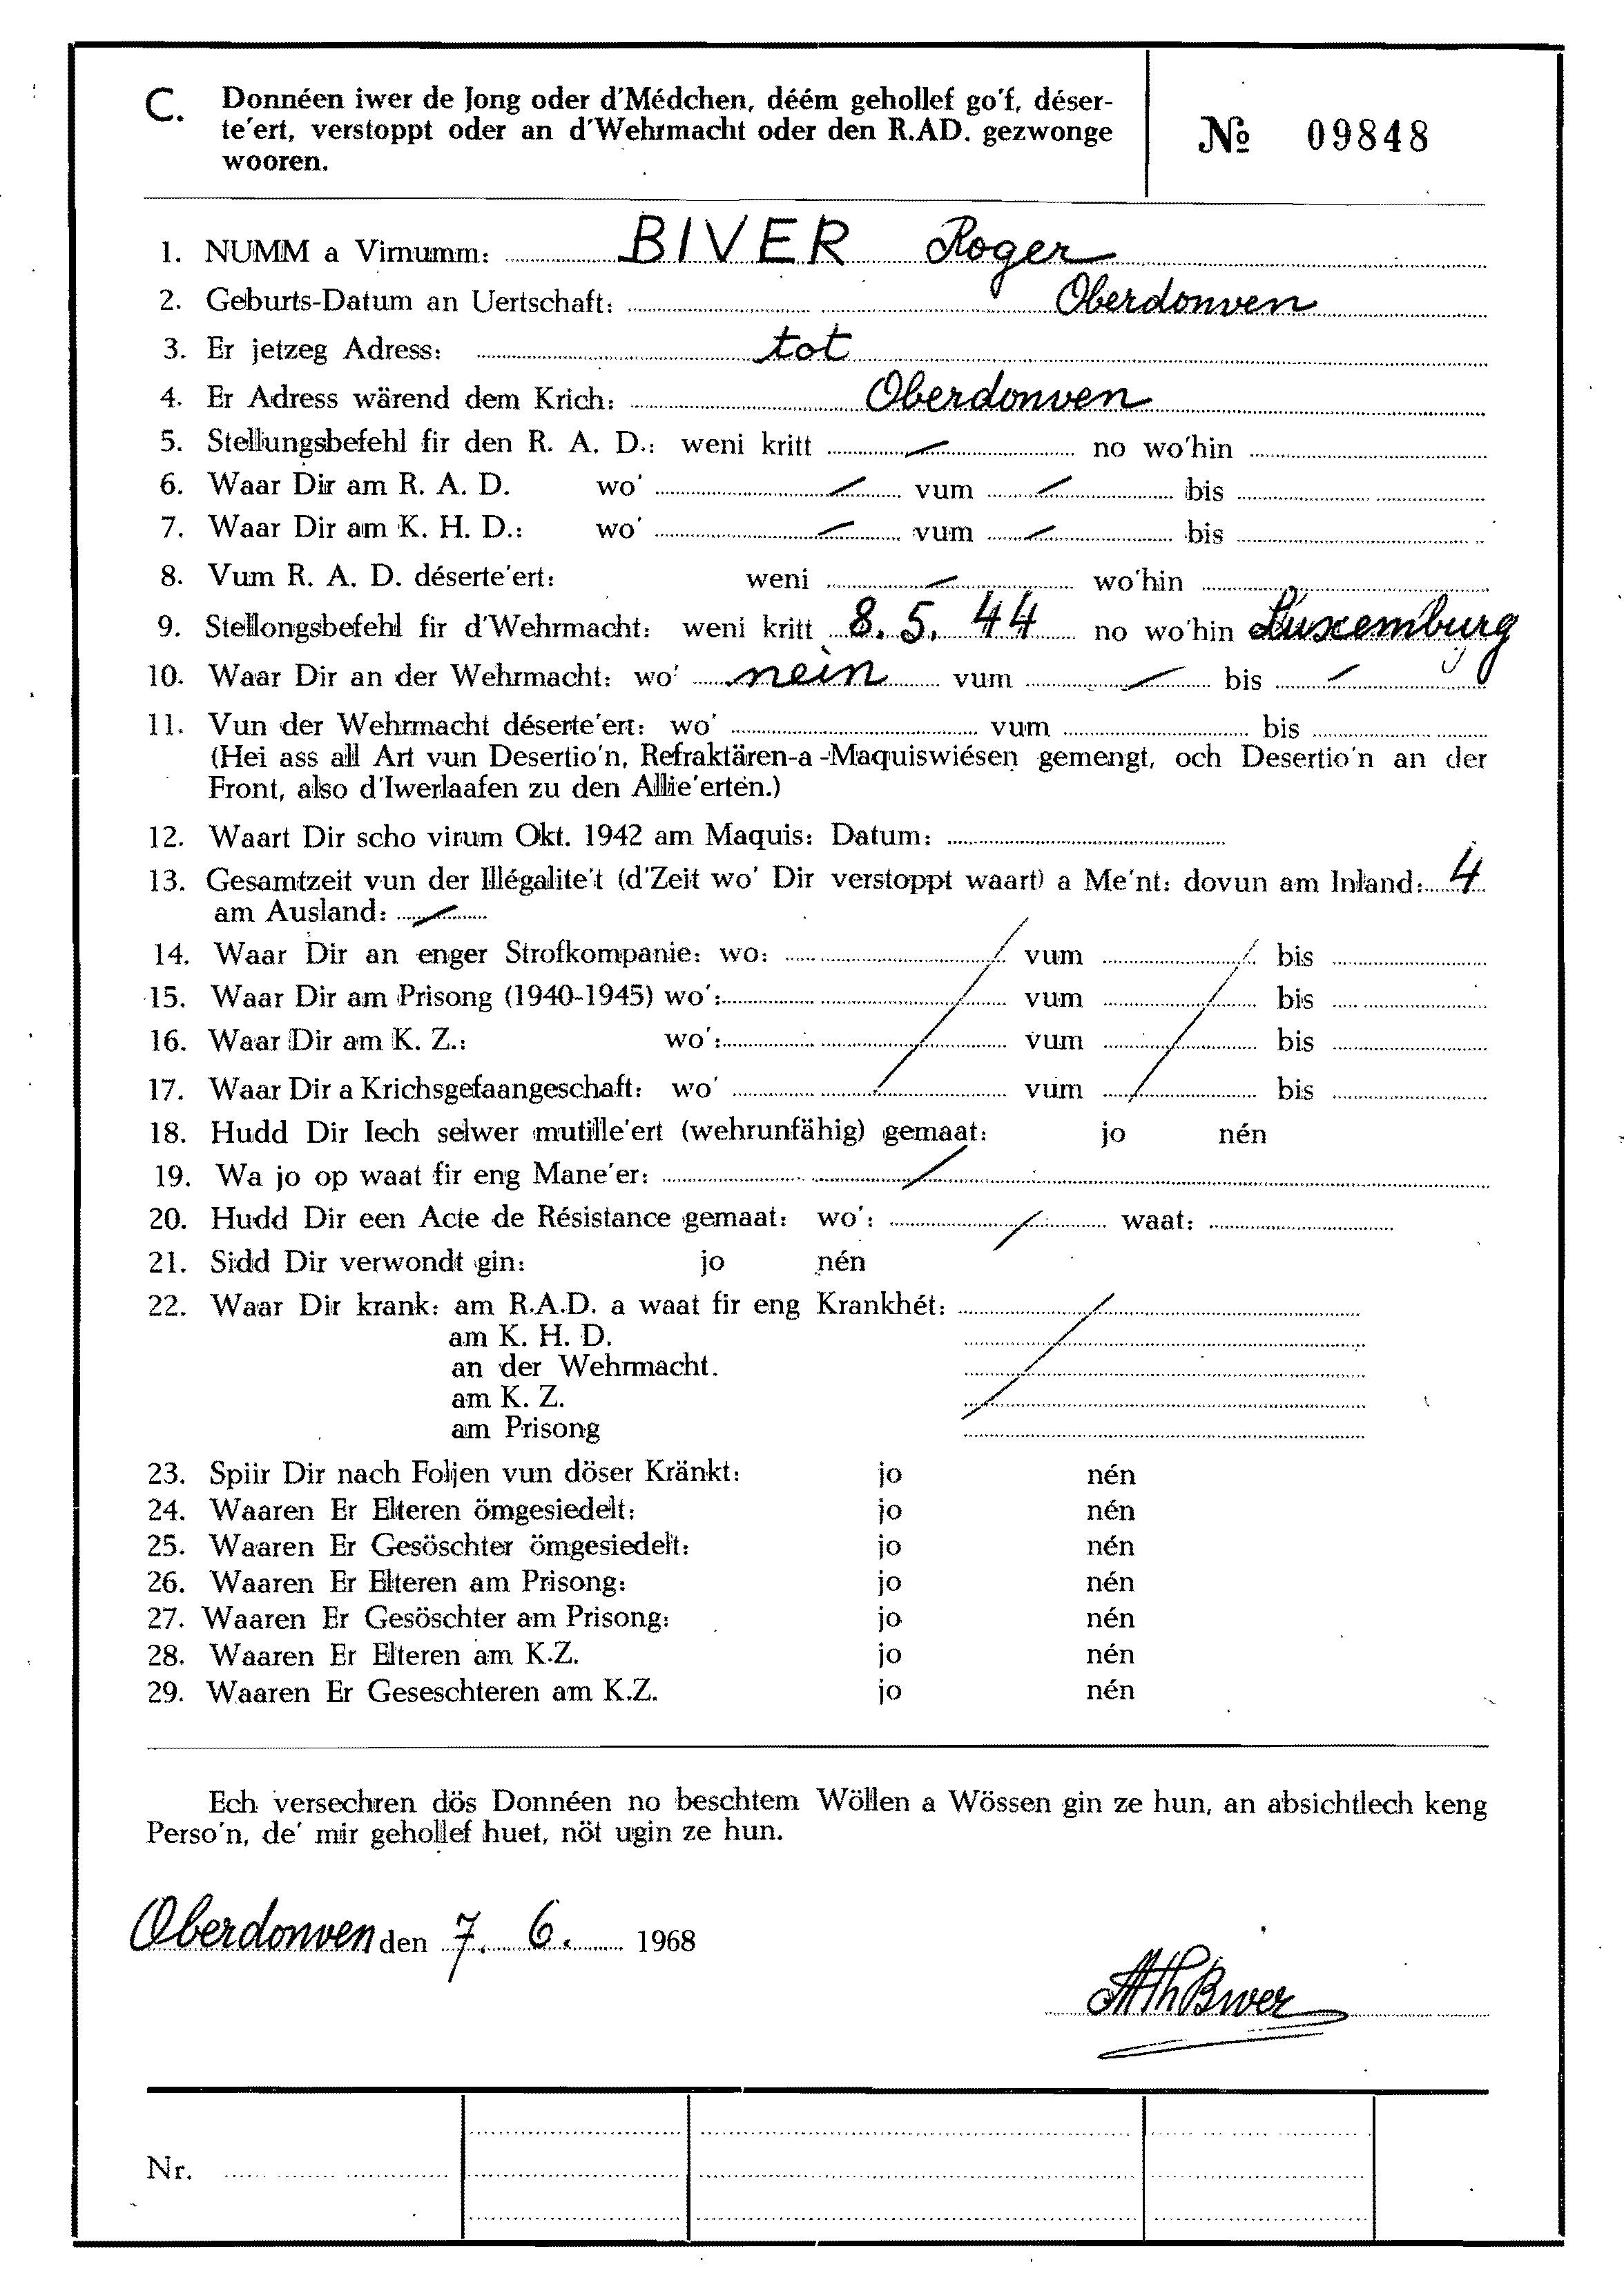 C. Donnéen iwer de Jong oder d'Médchen, déém gehollef go'f, déser-
te'ert, verstoppt oder an d'Wehrmacht oder den R.AD. gezwonge
wooren.
№ 09848
1. NUMM a Virnumm: BIVER Roger
2. Geburts-Datum an Uertschaft: Oberdonven
3. Er jetzeg Adress: tot
4. Er Adress wärend dem Krich: Oberdonven
5. Stellungsbefehl fir den R. A. D.: weni kritt — no wo'hin
6. Waar Dir am R. A. D. wo' — vum — bis
7. Waar Dir am K. H. D.: wo' — vum — bis
8. Vum R. A. D. déserte'ert: weni — wo'hin
9. Stellongsbefehl fir d'Wehrmacht: weni kritt 8. 5. 44 no wo'hin Luxemburg
10. Waar Dir an der Wehrmacht: wo' nein vum — bis —
11. Vun der Wehrmacht déserte'ert: wo' vum bis
(Hei ass all Art vun Desertio'n, Refraktären-a -Maquiswiésen gemengt, och Desertio'n an der
Front, also d'Iwerlaafen zu den Allie'erten.)
12. Waart Dir scho virum Okt. 1942 am Maquis: Datum:
13. Gesamtzeit vun der Illégalite't (d'Zeit wo' Dir verstoppt waart) a Me'nt: dovun am Inland: 4
am Ausland: —
14. Waar Dir an enger Strofkompanie: wo: vum bis
15. Waar Dir am Prisong (1940-1945) wo': vum bis
16. Waar Dir am K. Z.: wo': vum bis
17. Waar Dir a Krichsgefaangeschaft: wo' vum bis
18. Hudd Dir Iech selwer mutille'ert (wehrunfähig) gemaat: jo nén
19. Wa jo op waat fir eng Mane'er:
20. Hudd Dir een Acte de Résistance gemaat: wo': waat:
21. Sidd Dir verwondt gin: jo nén
22. Waar Dir krank: am R.A.D. a waat fir eng Krankhét:
am K. H. D.
an der Wehrmacht.
am K. Z.
am Prisong
23. Spiir Dir nach Foljen vun döser Kränkt: jo nén
24. Waaren Er Elteren ömgesiedelt: jo nén
25. Waaren Er Gesöschter ömgesiedelt: jo nén
26. Waaren Er Elteren am Prisong: jo nén
27. Waaren Er Gesöschter am Prisong: jo nén
28. Waaren Er Elteren am K.Z. jo nén
29. Waaren Er Geseschteren am K.Z. jo nén
Ech versechren dös Donnéen no beschtem Wöllen a Wössen gin ze hun, an absichtlech keng
Perso'n, de' mir gehollef huet, nöt ugin ze hun.
Oberdonven den 7. 6. 1968
Biver
Nr.